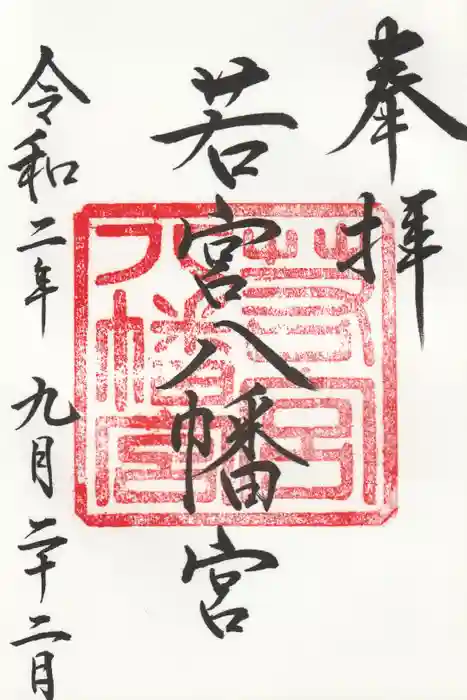 奉拝
若宮八幡宮
令和二年九月二十二月
若宮
八幡宮